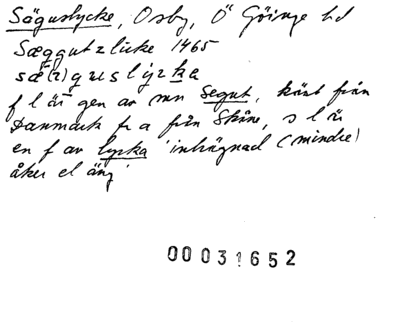 Söguslycke, Osby, Ö Göinge hd
Sæggutzlicke 1465
sæ(z)guslýzka
f l är gen av mn Segut, känt från
Danmark fr a från Skåne, s l är
en f av lycka 'inhägnad (mindre)
åker el äng'
00031652